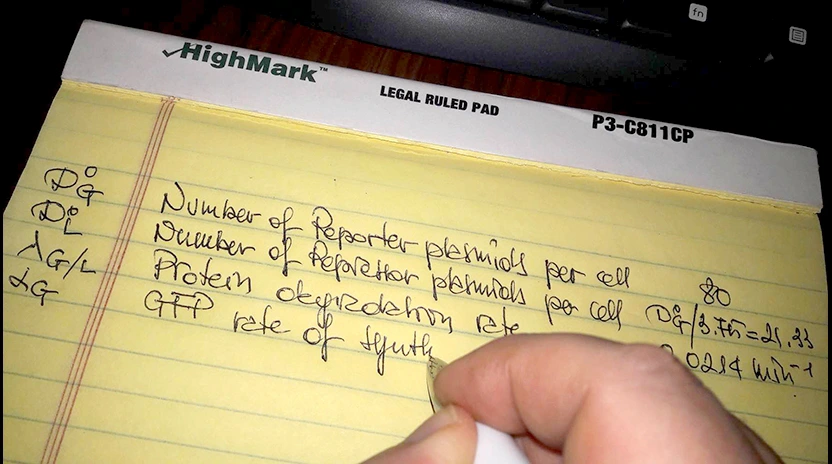 fn
✓HighMark™
LEGAL RULED PAD
P3-C811CP
D°G Number of Reporter plasmids per cell 80
D°L Number of Repressor plasmids per cell D°G/3.75=21.33
λG/L Protein degradation rate 0.0214 min⁻¹
αG GFP rate of synth